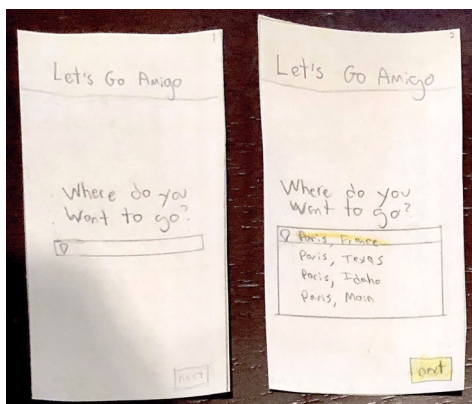 1
Let's Go Amigo
Where do you
Want to go?
next
2
Let's Go Amigo
Where do you
Want to go?
Paris, France
Paris, Texas
Paris, Idaho
Paris, Main
next